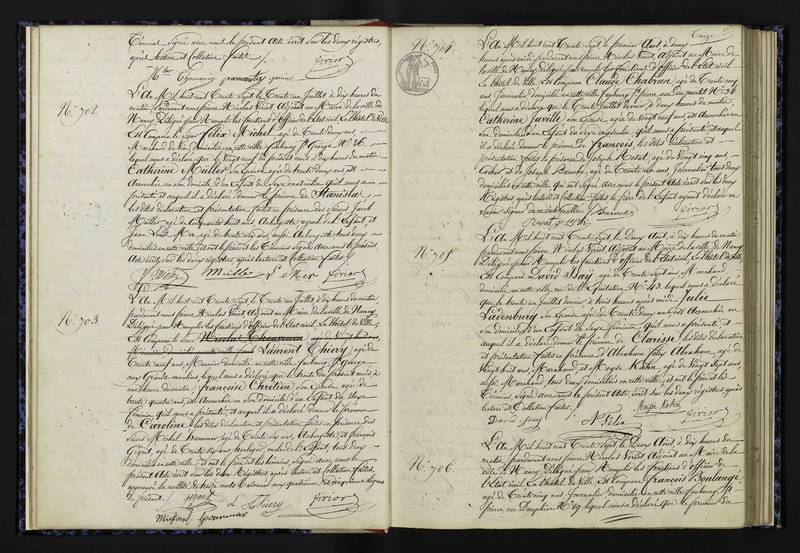 témoins signé avec nous le présent acte écrit sur les deux registres,
après lecture et Collation faites
N.º 702.
L'An Mil huit cent Trente Sept le Trente un Juillet à dix heures du
matin, pardevant nous pierre Nicolas Noirot Adjoint au Maire de la ville de
Nancy Délégué pour Remplir les fonctions d'officier de l'état civil. Le hôtel de Ville
Est Comparu le Sieur Félix Michel, agé de Trente deux ans
Marchand de Vin, domicilié en cette ville faubourg St. George N.º 36.
lequel nous a déclaré que le Vingt neuf du présent mois à dix heures du matin
Catherine Müller, Son Epouse agée de trente deux ans est
Accouchée en son domicile d'un Enfant du Sexe masculin qu'il nous a
présenté et auquel il a déclaré donner le prénom de Stanislas,
les dites déclaration et présentation faites en présence des Sieurs Jacob
Müller agé de Cinquante huit ans, Aubergiste, ayeul de l'Enfant et
Jean Louis Mer agé de trente six ans aussi Aubergiste tous deux
domiciliés en cette ville et ont le père et les Témoins Signé avec nous le présent
Acte écrit sur les deux registres, après lecture et Collation faites
F. Michel Müller L. Mer Noirot
N.º 703.
L'An Mil huit cent Trente Sept le Trente un Juillet à dix heures du matin,
pardevant nous pierre Nicolas Noirot Adjoint au Maire de la ville de Nancy,
Délégué pour Remplir les fonctions d'officier de l'état civil. Le hôtel de Ville
Est Comparu le Sieur
Laurent Thiery, agé de
Trente neuf ans, Manouvrier domicilié en cette ville faubourg St. George
aux Grands-moulins lequel nous a déclaré que le trente du présent mois, à
une heure du matin, Françoise Chrétien, Son Epouse agée de
trente quatre ans est Accouchée en Son domicile d'un Enfant du Sexe
féminin, qu'il nous a présenté, et auquel il a déclaré donner le prénom
de Caroline, les dites déclaration et présentation faites en présence des
Sieurs Michel
agé de Trente Six ans, Aubergiste, et françois
agé de Trente Six ans, horloger, oncle de l'Enfant, tous deux
domiciliés en cette ville, et ont le père et les témoins, Signé avec nous le
présent Acte écrit sur les deux Registres après lecture et Collation faites,
approuvé la nullité de treize mots
du présent.
L. Thiery Noirot
Treize
N.º 704.
L'An Mil huit cent Trente Sept, le premier Aout, à deux
heures après midi, pardevant nous pierre Nicolas Noirot, Adjoint au Maire de
la ville de Nancy, Délégué pour remplir les fonctions d'officier de l'état civil
Le hôtel de Ville. Est Comparu Claude Chabrun, agé de Trente cinq
ans, Journalier domicilié en cette ville, faubourg St. pierre
N.º 34.
lequel nous a déclaré que le Trente Juillet dernier, à deux heures du matin,
Catherine Juville, Son Epouse, agée de Vingt neuf ans, est Accouchée en
Son domicile d'un Enfant du Sexe masculin, qu'il nous a présenté et auquel
il a déclaré donner le prénom de François, les dites déclaration et
présentation faites en présence de Joseph Rosal, agé de Vingt cinq ans,
Cocher et de Joseph Baroche, agé de Trente six ans, Journalier tous deux
domiciliés en cette ville, qui ont Signé avec nous le présent Acte écrit sur les deux
Registres, après lecture et collation faites, le père de l'Enfant ayant déclaré ne
Savoir Signer
Noirot
N.º 705.
L'An Mil huit cent Trente Sept, le Deux Aout, à dix heures du matin,
pardevant nous pierre Nicolas Noirot Adjoint au Maire de la ville de Nancy
Délégué pour Remplir les fonctions d'officier de l'état civil. Le hôtel de Ville
Est Comparu David Say, agé de Trente Sept ans, Marchand
domicilié en cette ville, rue de l'Equitation N.º 43. lequel nous a déclaré
que le trente un Juillet dernier à trois heures après midi, Julie
Ladenburg Son Epouse agée de Trente Deux ans, est Accouchée en
Son domicile d'un Enfant du Sexe féminin, qu'il nous a présenté, et
auquel il a déclaré donner le prénom de Clarisse, les dites déclaration
et présentation faites en présence d'Abraham Félix Abraham, agé de
Vingt huit ans, Marchand, et Moyse Kahn, agé de Vingt Sept ans,
aussi Marchand, tous deux domiciliés en cette ville, et ont le père et les
Témoins, Signé avec nous le présent Acte écrit sur les deux registres après
lecture et Collation faites.
Moyse Kahn
Noirot
N.º 706.
L'An Mil huit cent Trente Sept, le Deux Aout, à dix heures du
matin pardevant nous pierre Nicolas Noirot Adjoint au Maire de la
ville de Nancy Délégué pour Remplir les fonctions d'officier de
l'état civil. Le hôtel de Ville. Est Comparu François Boulangé,
agé de Trente cinq ans, Journalier, domicilié en cette ville, faubourg St.
pierre, rue Dauphine N.º 19. lequel nous a déclaré que le premier du